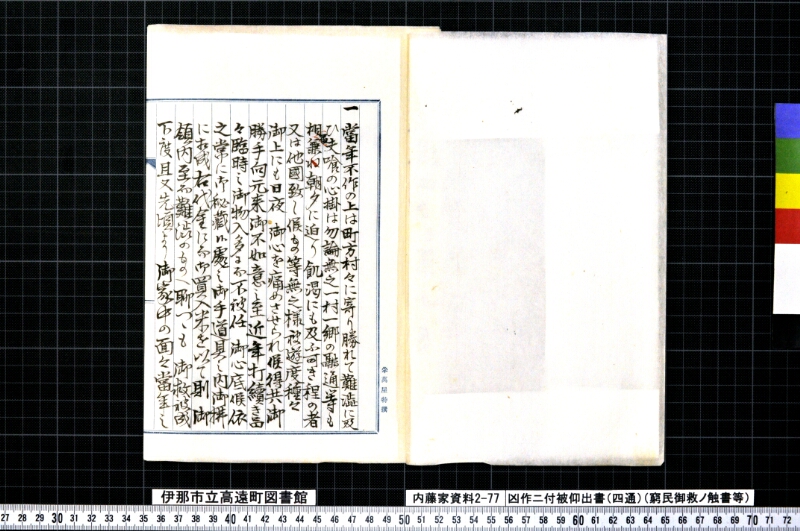 一當年不作の上は町方村々に寄り勝れて難澁に及
ひ夫喰の心掛は勿論無之一村一郷の融通等も
相兼ね朝夕に迫り飢渇にも及ふ可き程の者
又は他國致し候もの等無之様被遊度種々
御上にも日夜御心を痛めさせられ候得共御
勝手向元来御不如意之至近年打續き面
々臨時之御物入多不被任御心底候依
之常に御秘藏処之御手道具之内御拂
に相成右代金に而御買入米を以て則御
領内至而難澁のもの聊つゝも御救被成
下度且又先頃より御家中の面々當年之
榮真屋特撰
伊那市立高遠町図書館
内藤家資料2-77 凶作ニ付被仰出書(四通)(窮民御救ノ触書等)
27 28 29 30 31 32 33 34 35 36 37 38 39 40 41 42 43 44 45 46 47 48 49 50 51 52 53 54 55 56 57 58 59 60 61 62 63 64 65 66 67 68 69 70 71 72